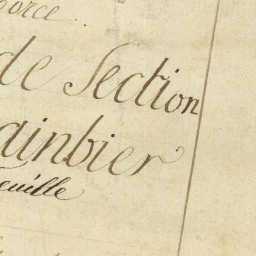 orce.
de Section
ainbier
euille